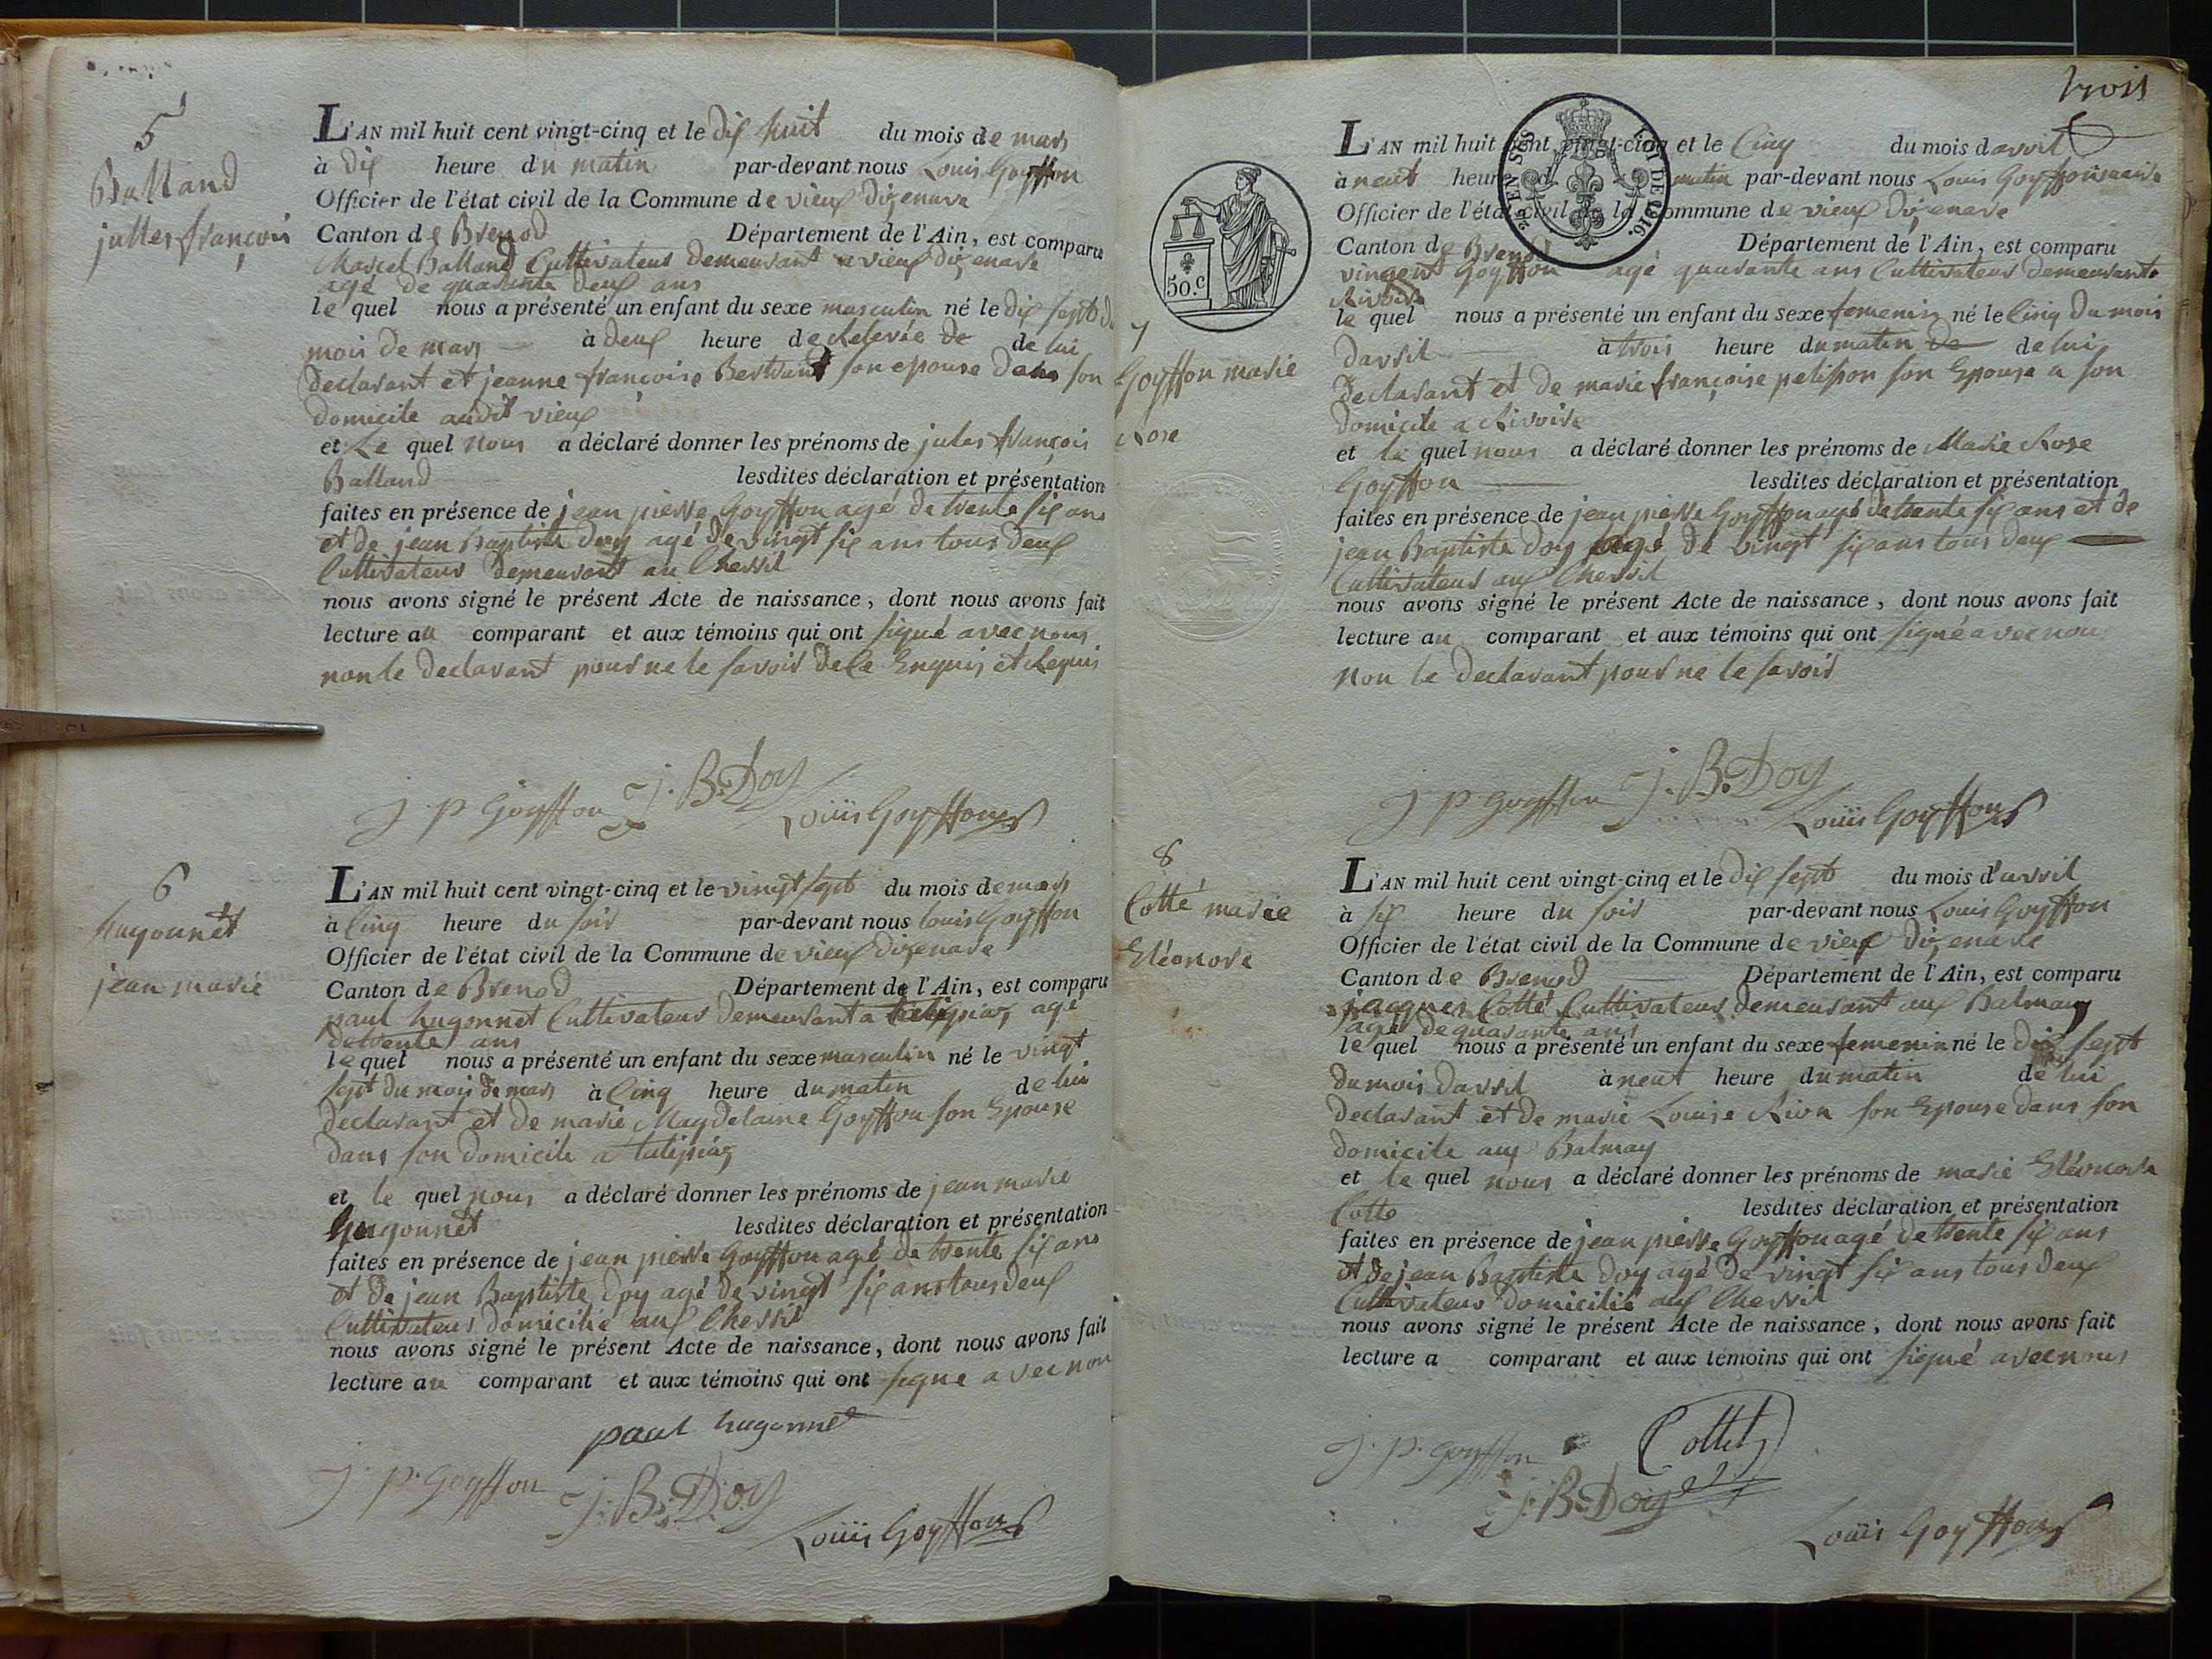 5
Balland
jules françois
L'AN mil huit cent vingt-cinq et le dix huit du mois de mars
à dix heure du matin par-devant nous Louis Goyffon
Officier de l'état civil de la Commune de vieux dizenave
Canton de Brenod Département de l'Ain, est comparu
Marcel Balland Cultivateur demeurant a vieux dizenave
agé de quarante deux ans
le quel nous a présenté un enfant du sexe masculin né le dix sept du
mois de mars à deux heure de Relevée de de lui
declarant et jeanne françoise Bertrand son epouse dans son
domicile audit vieux
et Le quel nous a déclaré donner les prénoms de jules françois
Balland lesdites déclaration et présentation
faites en présence de jean pierre Goyffon agé de trente six ans
et de jean Baptiste doy agé de vingt six ans tous deux
Cultivateur demeurant au Chevril
nous avons signé le présent Acte de naissance, dont nous avons fait
lecture au comparant et aux témoins qui ont signé avec nous
non le declarant pour ne le savoir de ce Enquis et Requis
J P Goyffon J. B. Doy
Louis Goyffon
6
hugonnet
jean marie
L'AN mil huit cent vingt-cinq et le vingt sept du mois de mars
à Cinq heure du soir par-devant nous Louis Goyffon
Officier de l'état civil de la Commune de vieux dizenave
Canton de Brenod Département de l'Ain, est comparu
paul hugonnet Cultivateur demeurant a agé
de trente ans
le quel nous a présenté un enfant du sexe masculin né le vingt
sept du mois de mars à Cinq heure du matin de lui
declarant et de marie Magdelaine Goyffon son Epouse
dans son domicile a
et le quel nous a déclaré donner les prénoms de jean marie
hugonnet lesdites déclaration et présentation
faites en présence de jean pierre Goyffon agé de trente six ans
et de jean Baptiste doy agé de vingt six ans tous deux
Cultivateurs domicilié aux Chevril
nous avons signé le présent Acte de naissance, dont nous avons fait
lecture au comparant et aux témoins qui ont signe avec nous
paul hugonnet
J. P. Goyffon J. B. Doy
Louis Goyffon
trois
50.C
25 EN SUS
LOI DE 1816.
7
Goyffon marie
Rose
L'AN mil huit cent vingt-cinq et le Cinq du mois d avril
à neuf heure du matin par-devant nous Louis Goyffon maire
Officier de l'état civil de la Commune de vieux dizenave
Canton de Brenod Département de l'Ain, est comparu
vincent Goyffon agé quarante ans Cultivateur demeurant a
Rivoire
le quel nous a présenté un enfant du sexe femenin né le Cinq du mois
davril à trois heure du matin de de lui
declarant et de marie françoise pelisson son Epouse a son
domicile a Rivoire
et le quel nous a déclaré donner les prénoms de Marie Rose
Goyffon lesdites déclaration et présentation
faites en présence de jean pierre Goyffon agé de trente six ans et de
jean Baptiste doy agé de vingt six ans tous deux
Cultivateur aux Chevril
nous avons signé le présent Acte de naissance, dont nous avons fait
lecture au comparant et aux témoins qui ont signé avec nous
non le declarant pour ne le savoir
J P Goyffon J. B. Doy
Louis Goyffon
8
Cotté marie
Eléonore
L'AN mil huit cent vingt-cinq et le dix sept du mois d'avril
à six heure du soir par-devant nous Louis Goyffon
Officier de l'état civil de la Commune de vieux dizenave
Canton de Brenod Département de l'Ain, est comparu
jacques Cotté Cultivateur demeurant aux Balmay
agé de quarante ans
le quel nous a présenté un enfant du sexe femenin né le dix sept
du mois davril à neuf heure du matin de lui
declarant et de marie Louise Rion son Epouse dans son
domicile aux Balmay
et le quel nous a déclaré donner les prénoms de marie Eléonore
Cotte lesdites déclaration et présentation
faites en présence de jean pierre Goyffon agé de trente six ans
et de jean Baptiste doy agé de vingt six ans tous deux
Cultivateur domicilié aux Chevril
nous avons signé le présent Acte de naissance, dont nous avons fait
lecture a comparant et aux témoins qui ont signé avec nous
J. P. Goyffon Cottet
J. B. Doy
Louis Goyffon